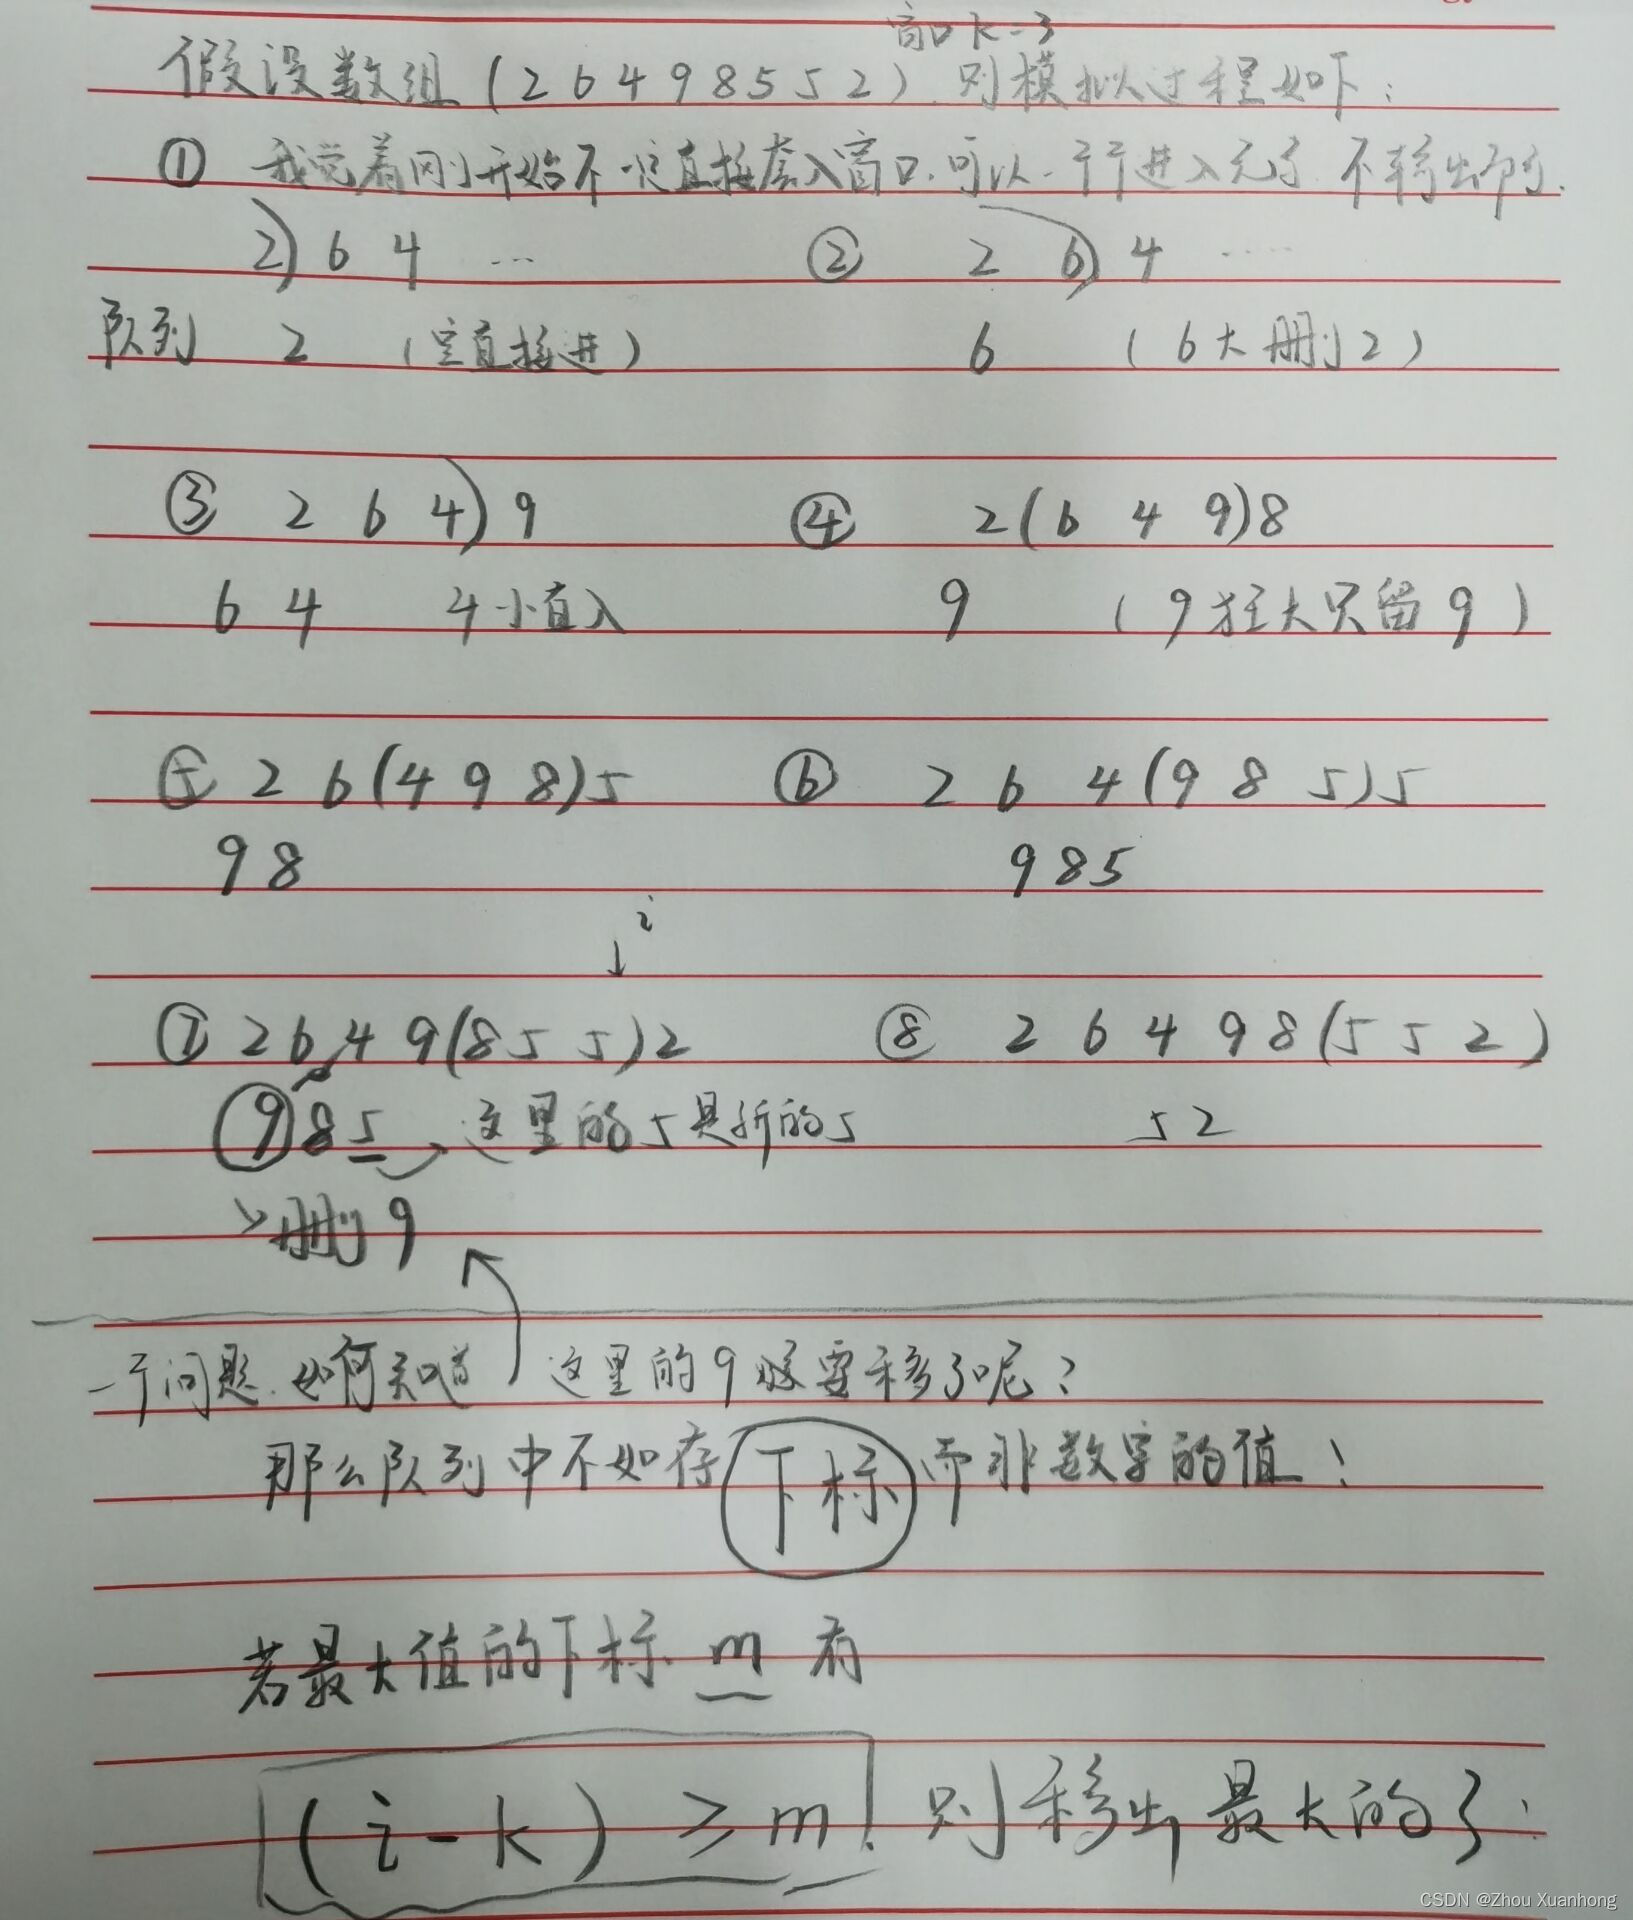 窗口k=3
假设数组(2 6 4 9 8 5 5 2),则模拟过程如下:
① 我觉着刚开始不一定直接套入窗口,可以一个个进入元素 不移出即可.
2) 6 4 ... ② 2 6) 4 ....
队列 2 (空直接进) 6 (6大删2)
③ 2 6 4) 9 ④ 2(6 4 9)8
6 4 4小直入 9 (9狂大只留9)
⑤ 2 6(4 9 8)5 ⑥ 2 6 4(9 8 5)5
9 8 9 8 5
i
↓
⑦ 2 6 4 9(8 5 5)2 ⑧ 2 6 4 9 8(5 5 2)
9 8 5 这里的5是新的5 5 2
删9
一个问题,如何知道 这里的9要移了呢?
那么队列中不如存下标而非数字的值!
若最大值的下标 m 有
(i-k) ≥ m! 则移出最大的了!
CSDN @Zhou Xuanhong